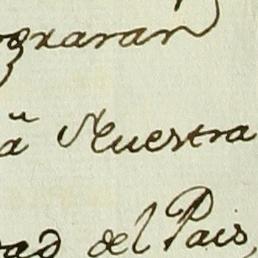 ograran
a Nuestra
ad del Pais,